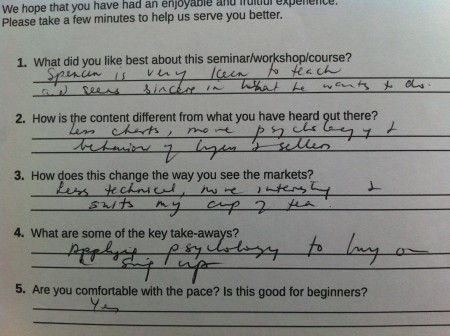 We hope that you have had an enjoyable and fruitful experience.
Please take a few minutes to help us serve you better.
1. What did you like best about this seminar/workshop/course?
Spencer is very keen to teach
and seems sincere in what he wants to do.
2. How is the content different from what you have heard out there?
Less charts, more psychology &
behavior of buyers & sellers
3. How does this change the way you see the markets?
Less technical, more interesting &
suits my cup of tea
4. What are some of the key take-aways?
Applying psychology to buy on
up
5. Are you comfortable with the pace? Is this good for beginners?
Yes